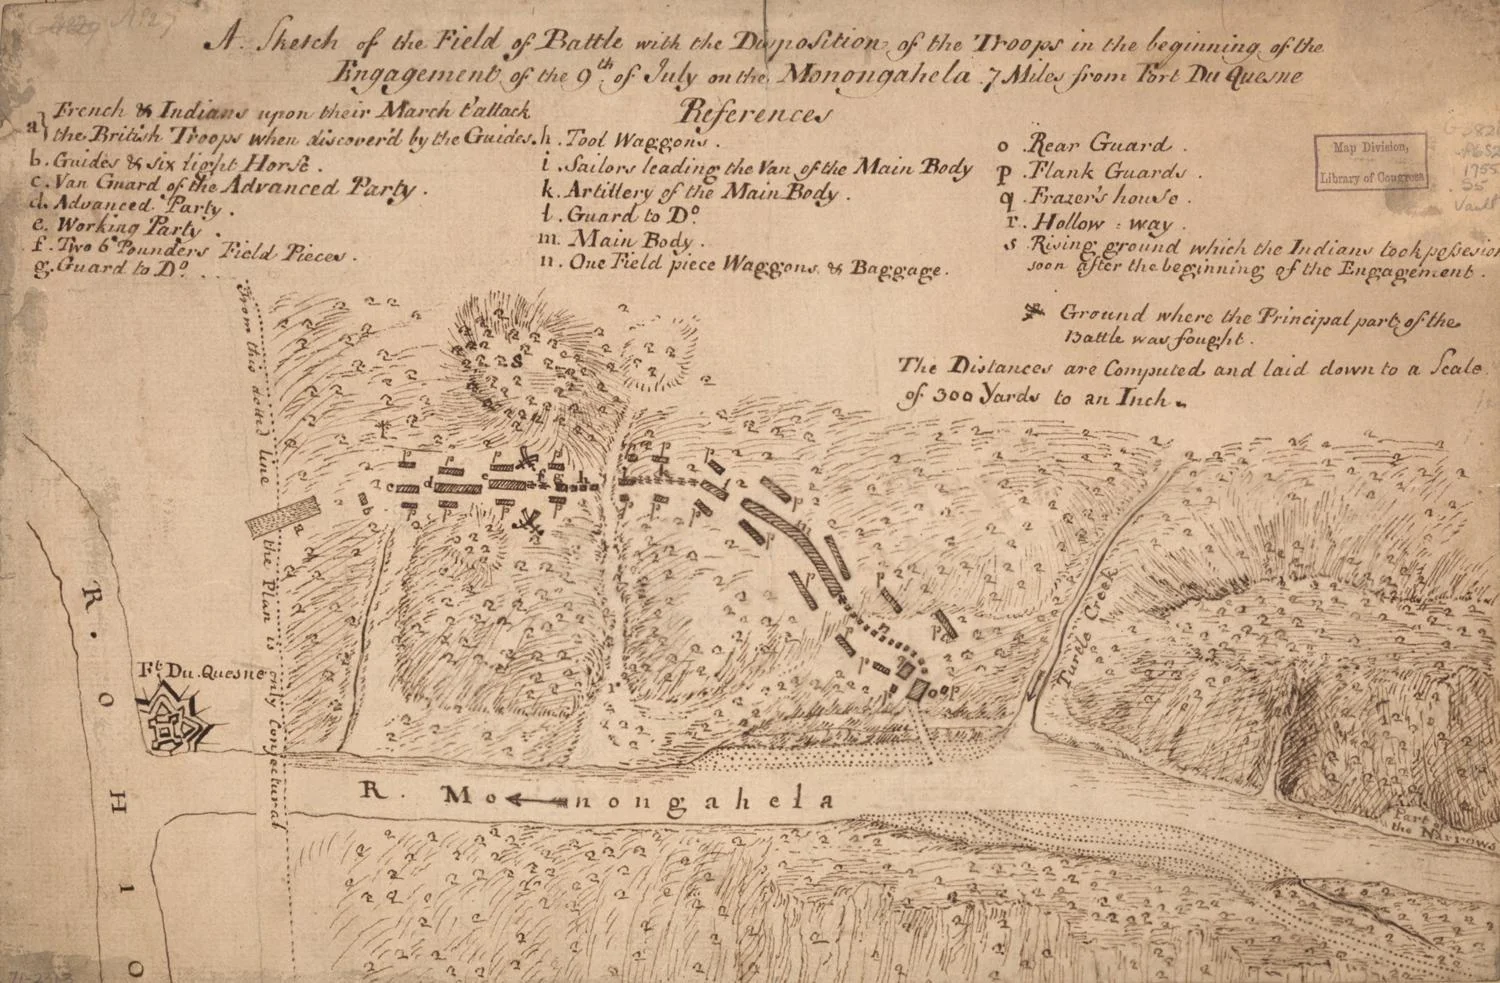 A Sketch of the Field of Battle with the Disposition of the Troops in the beginning of the
Engagement of the 9th of July on the Monongahela 7 Miles from Fort Du Quesne
References
a} French & Indians upon their March t'attack
the British Troops when discover'd by the Guides.
b. Guides & six light Horse.
c. Van Guard of the Advanced Party.
d. Advanced Party.
e. Working Party.
f. Two 6 Pounders Field Pieces.
g. Guard to Do.
h. Tool Waggons.
i. Sailors leading the Van of the Main Body
k. Artillery of the Main Body.
l. Guard to Do.
m. Main Body.
n. One Field piece Waggons & Baggage.
o. Rear Guard.
p. Flank Guards.
q. Frazer's house.
r. Hollow way.
s Rising ground which the Indians took possession
soon after the beginning of the Engagement.
Ground where the Principal part of the
Battle was fought.
The Distances are Computed and laid down to a Scale
of 300 Yards to an Inch.
Map Division,
Library of Congress
1755
Vault
From this dotted line the Plan is only Conjectural
s
p p p p p p
c d e f g h i l
b
p p p p p p
a
m
p
p
p
n
p
p
q
o p
r
Turtle Creek
Ft. Du Quesne
R. OHIO
R. Monongahela
Part of
the Narrows